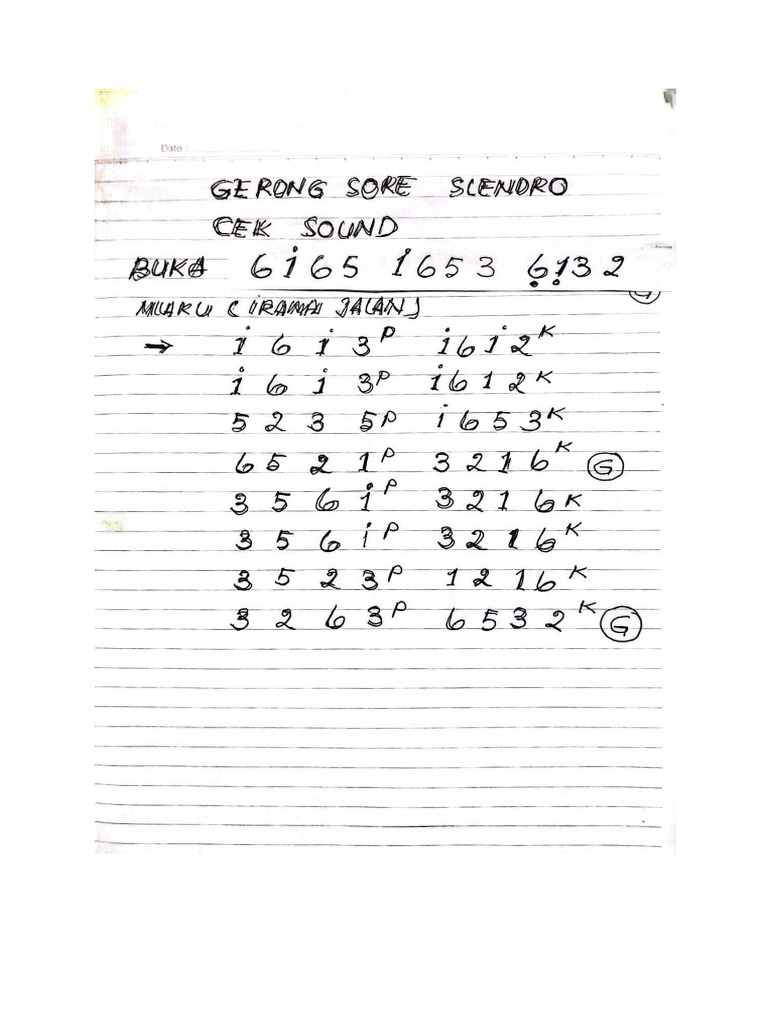 Date :
GERONG SORE SLENDRO
CEK SOUND
BUKA 6 i 6 5 i 6 5 3 6̣ 1̣ 3 2
G
MLAKU (IRAMA JALAN)
→ i 6 i 3ᴾ i 6 i 2ᴷ
i 6 i 3ᴾ i 6 1 2ᴷ
5 2 3 5ᴾ i 6 5 3ᴷ
6 5 2 1ᴾ 3 2 1 6ᴷ G
3 5 6 iᴾ 3 2 1 6ᴷ
3 5 6 iᴾ 3 2 1 6ᴷ
3 5 2 3ᴾ 1 2 1 6ᴷ
3 2 6 3ᴾ 6 5 3 2ᴷ G